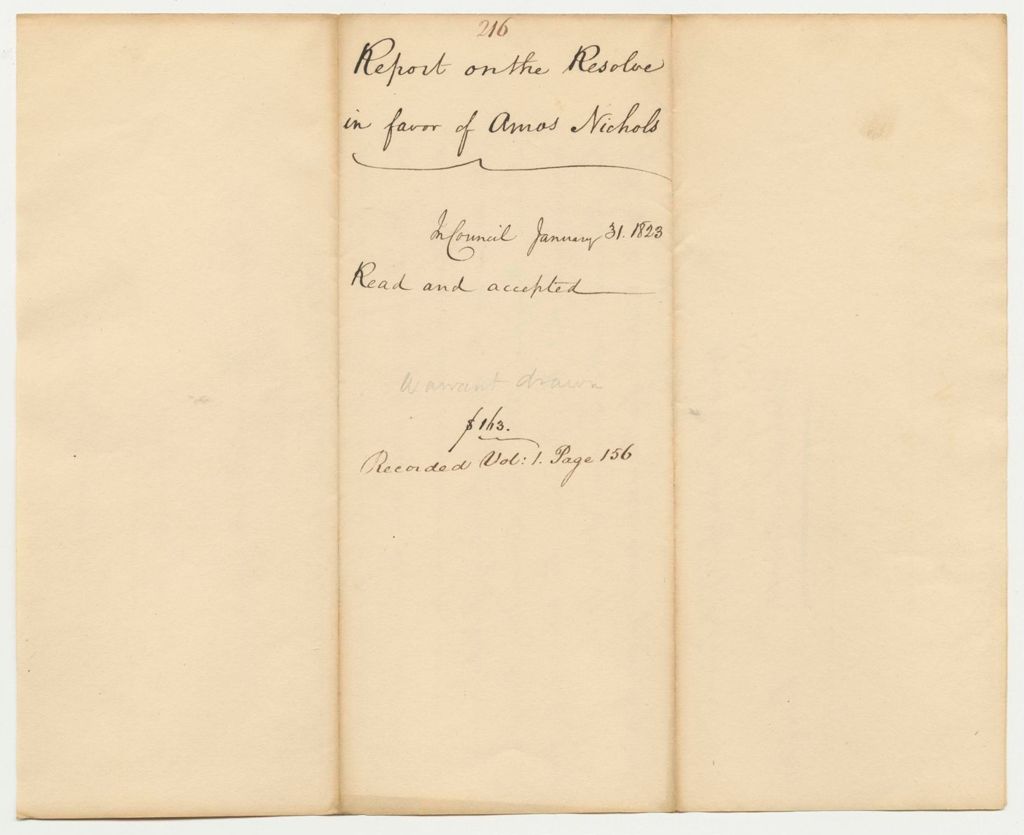 216
Report on the Resolve
in favor of Amos Nichols
In Council January 31. 1823
Read and accepted
Warrant drawn
$163.
Recorded Vol: 1. Page 156